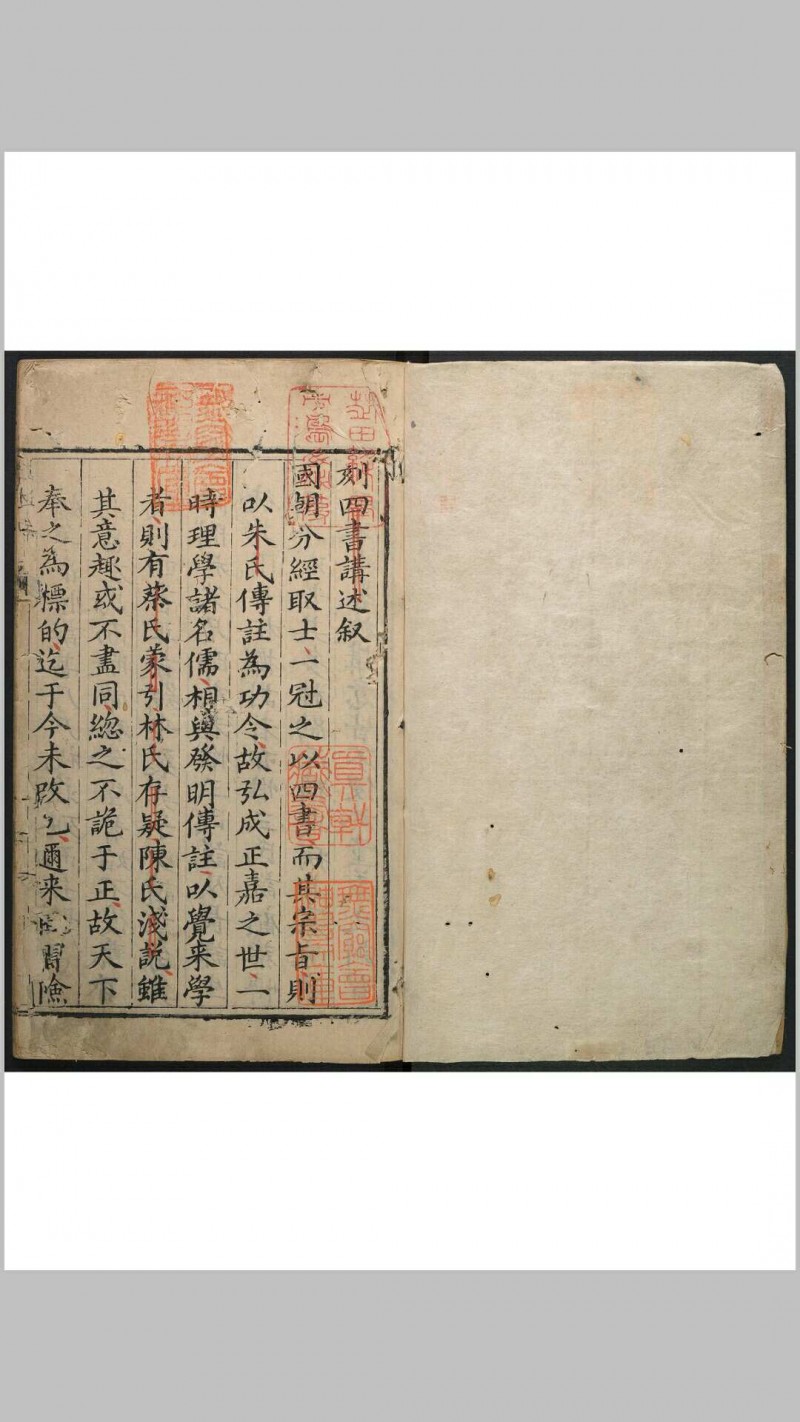 刻四書講述叙
國朝分經取士一冠之以四書而其宗旨則
以朱氏傳註為功令故弘成正嘉之世一
時理學諸名儒相與發明傳註以覺来學
者則有蔡氏蒙引林氏存疑陳氏淺說雖
其意趣或不盡同總之不詭于正故天下
奉之為標的迄于今未改乞邇来習險